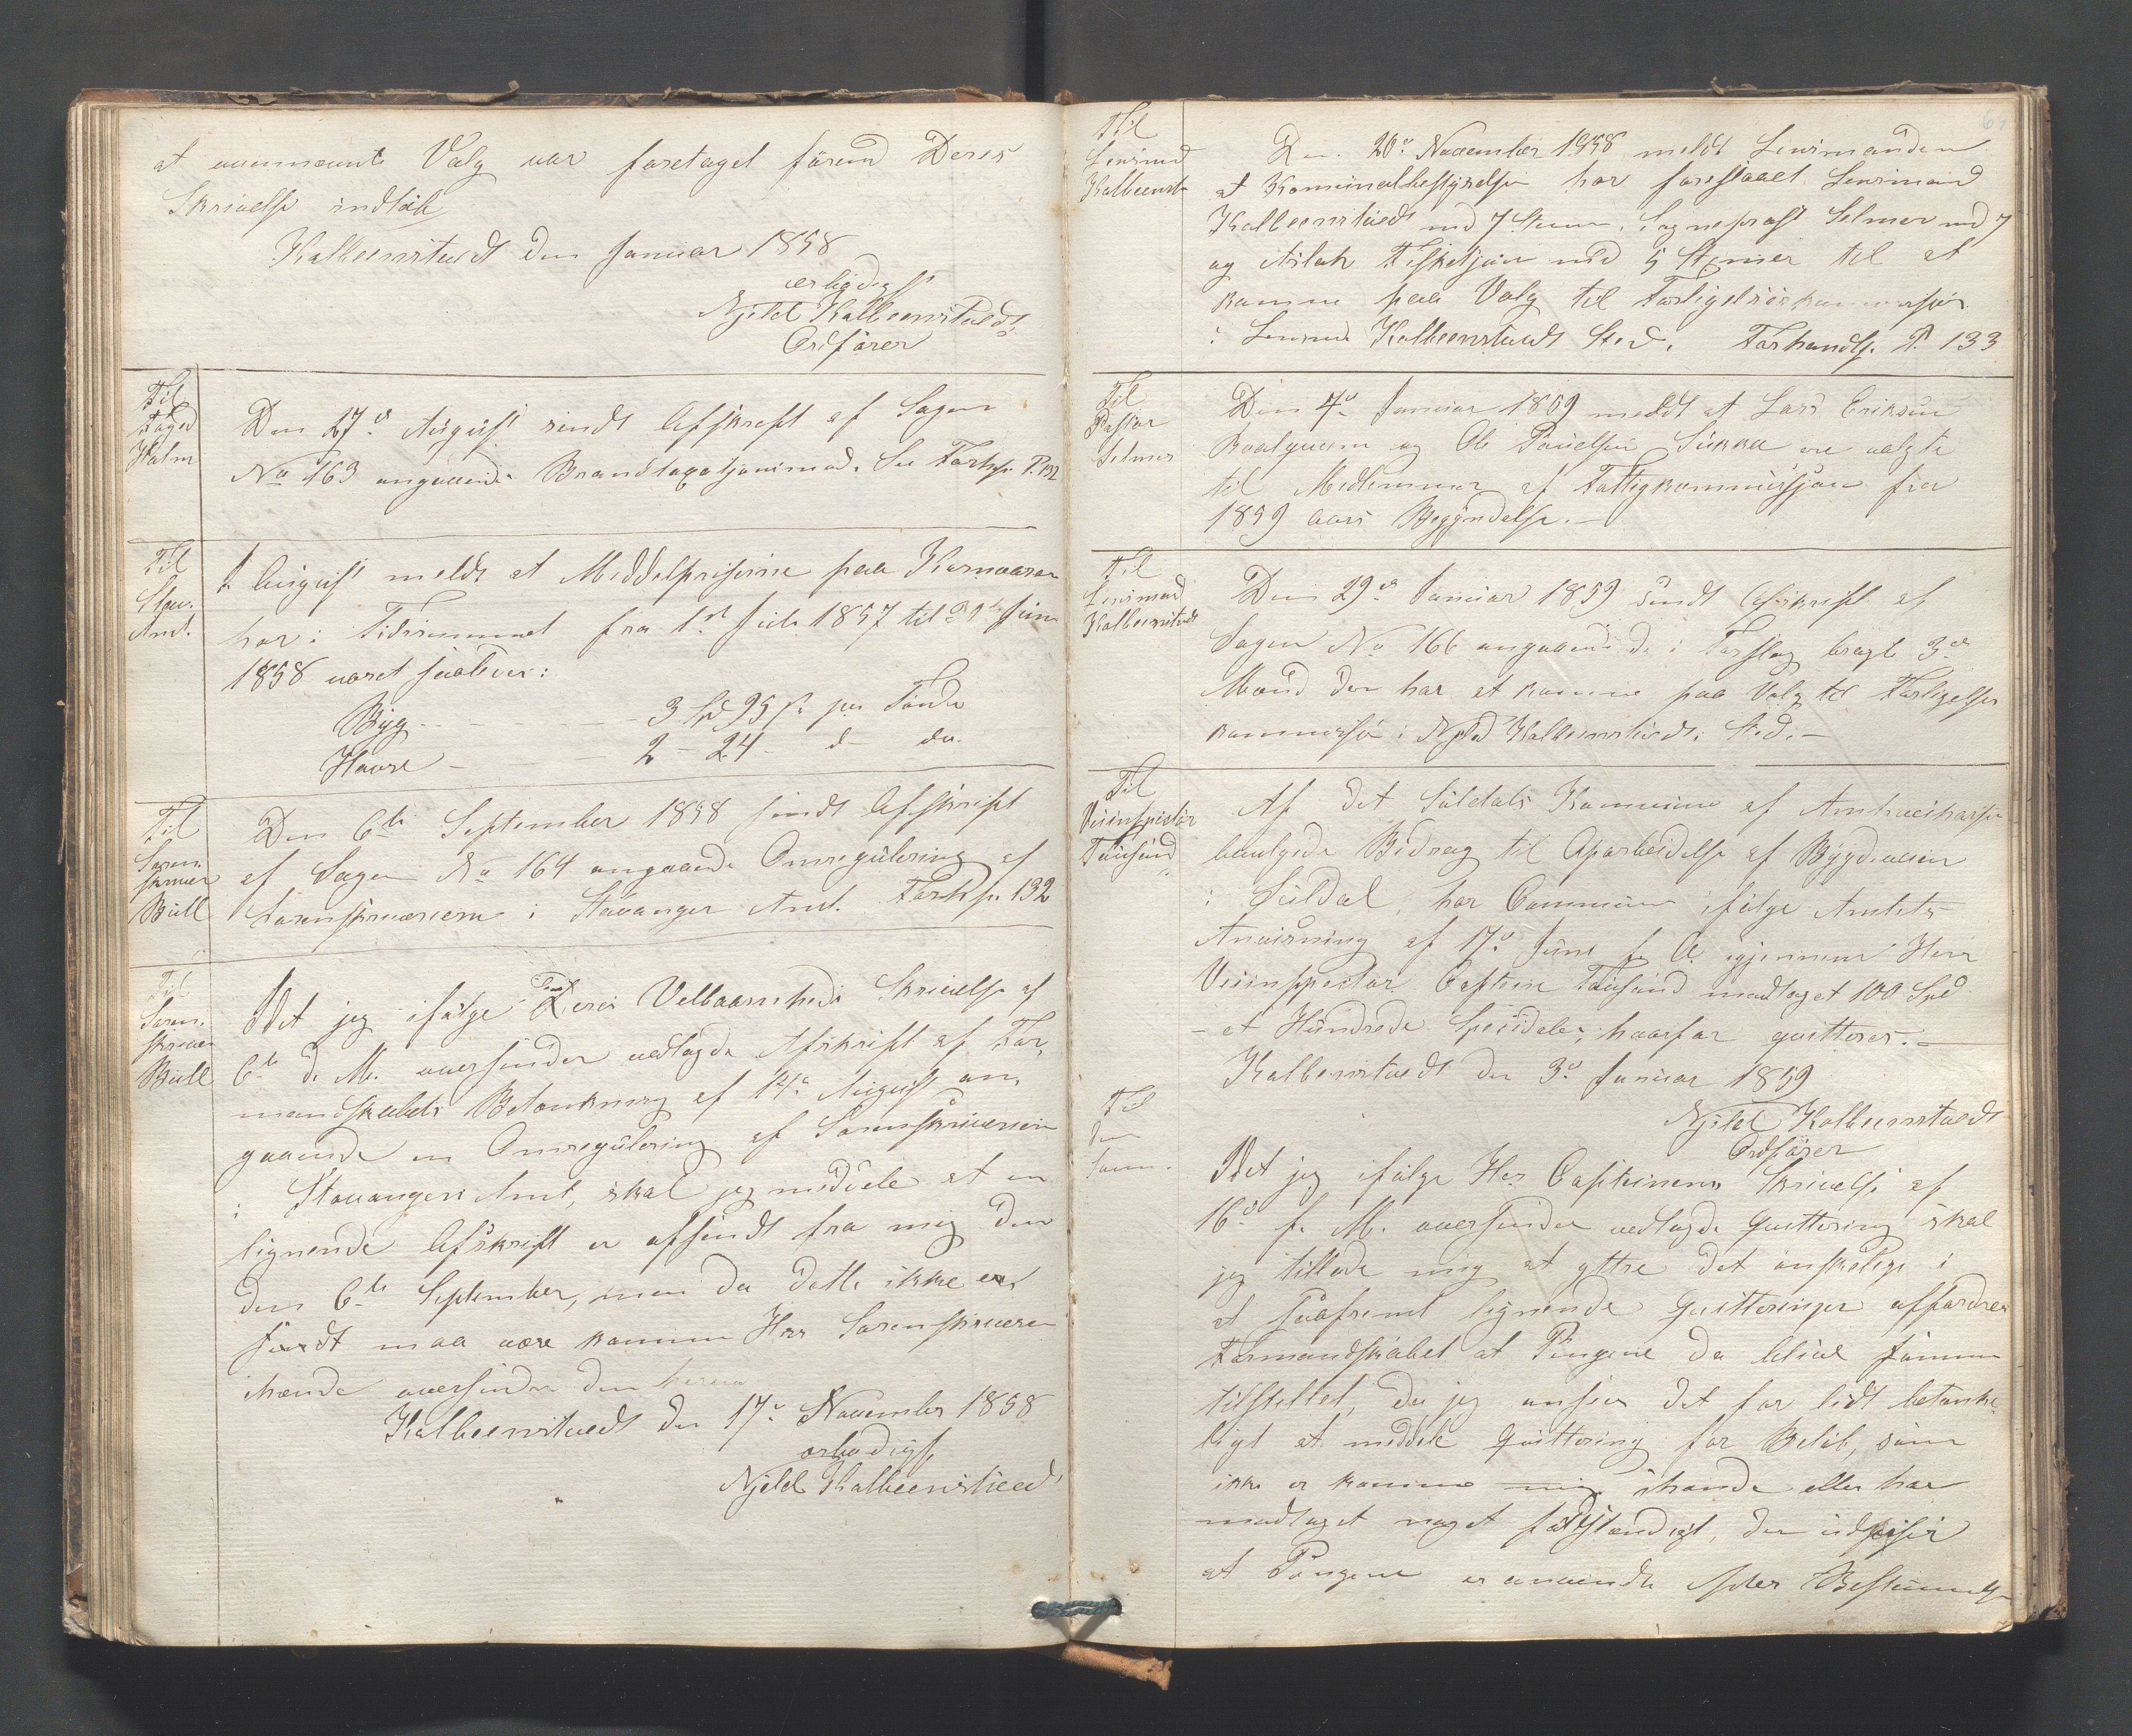 at ovennævnte Valg var foretaget førend Deres
Skrivelse indløb
Kolbeenstvedt den Januar 1858
ærbødigst
Njeld Kolbeenstvedt
Ordfører
Til
Foged
Holm
Den 27de August sendt Afskrift af Sagen
No 163 angaaende Brandtaxatjonsmænd. See Forhp. P. 132
Til
Stav.
Amt.
August meldt at Middelpriserne paa Kornvarer
har i Tidsrummet fra 1ste Juli 1857 til 31te Juni
1858 været saaledes:
Byg - - - - 3 Spd 95 s. per Tønde
Havre - - - 2 - 24 - d - do.
Til
Soren-
skriver
Bull
Den 6te September 1858 sendt Afskrift
af Sagen No 164 angaaende Omregulering af
Sorenskriverierne i Stavanger Amt. Forhp. 132
Til
Soren-
skriver
Bull
Idet jeg ifølge Deres Velbaarenheds Skrivelse af
6te d. M. oversender vedlagde Afskrift af For-
mandskabets Betænkning af 14de August an-
gaaende en Omregulering af Sorenskriverierne
i Stavangers Amt, skal jeg meddele at en
lignende Afskrift er afsendt fra mig den
den 6te September, men da dette ikke er
sendt maa være kommen Herr Sorenskriveren
ihænde oversendes den herved
Kolbeenstvedt den 17de November 1858
ærbødigst
Njeld Kolbeenstvedt
61
Til
Lensmd
Kolbeenst.
Den 20de November 1858 meldt Lensmanden
at Komunalbestyrelsen har foreslaaet Lensmand
Kolbeenstvedt med 7 Stemmer, Sognepræst Selmer med 7
og Aslak Fisketjøn med 5 Stemmer til at
komme paa Valg til Forligelseskommissjon
i Lensmd Kolbeenstvedts Sted. Forhandlp. P. 133
Til
Pastor
Selmer
Den 4de Januar 1859 meldt at Lars Eriksen
Roalqvam og Ole Povelsen Sukka ere valgte
til Medlemmer af Fattigkommissjon fra
1859 Aars Begyndelse. -
Til
Lensmand
Kolbeenstvedt
Den 29de Januar 1859 sendt Afskrift af
Sagen No 166 angaaende de i Forslag bragte 3de
Mænd der har at komme paa Valg til Forligelses
kommissjon i Njeld Kolbeenstvedts Sted. -
Til
Veiinspectør
Tousand
Af det Suledals Kommune af Amtsveikassen
bevilgede Bidrag til Oparbeidelse af Bygdeveien
i Suldal, har Communen ifølge Amtets
Anvisning af 17de Juni f. A. igjennem Herr
Veiinspectør Captein Tousand modtaget 100 Spd
- et Hundrede Speciedaler, hvorfor qvitteres. -
Kolbeenstvedt den 3de Januar 1859
Njeld Kolbeenstvedt
Ordfører
Til
den
samme.
Idet jeg ifølge Her Capteinens Skrivelse af
16de f. M. oversender vedlagde Qvittering skal
jeg tillade mig at yttre det ønskelige i
at saafremt lignende Qvitteringer affordres
Formandskabet at Pengene da blive samme
tilstillet, da jeg ansees det for lidt betænke-
ligt at meddele Qvittering for Beløb, som
ikke er komne mig ihænde eller har
modtaget noget fuldstændigt, der udviser
at Pengene er anvendte efter Bestemmelse